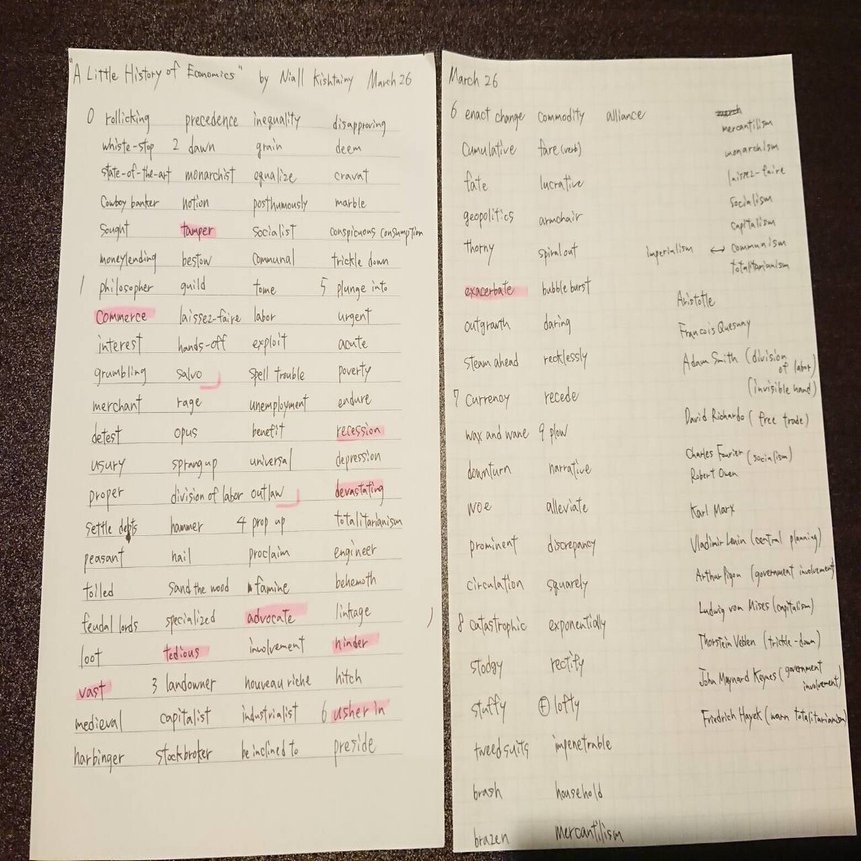 "A Little History of Economics" by Niall Kishtainy March 26
0 rollicking
whiste-stop
state-of-the-art
Cowboy banker
sought
moneylending
1 philosopher
Commerce
interest
grumbling
merchant
detest
usury
proper
settle depts
peasant
tolled
feudal lords
loot
vast
medieval
harbinger
precedence
2 dawn
monarchist
notion
tamper
bestow
guild
laissez-faire
hands-off
salvo
rage
opus
sprang up
division of labor
hammer
nail
sand the wood
specialized
tedious
3 landowner
capitalist
stockbroker
inequality
grain
equalize
posthumously
socialist
communal
tome
labor
exploit
spell trouble
unemployment
benefit
universal
outlaw
4 prop up
proclaim
famine
advocate
involvement
nouveau riche
industrialist
be inclined to
disapproving
deem
cravat
marble
conspicuous consumption
trickle down
5 plunge into
urgent
acute
poverty
endure
recession
depression
devastating
totalitarianism
engineer
behemoth
linkage
hinder
hitch
6 usher in
preside
March 26
6 enact change
cumulative
fate
geopolitics
thorny
exacerbate
outgrowth
steam ahead
7 currency
wax and wane
downturn
woe
prominent
circulation
8 catastrophic
stodgy
stuffy
tweed suits
brash
brazen
commodity
fare (verb)
lucrative
armchair
spiral out
bubble burst
daring
recklessly
recede
9 plow
narrative
alleviate
discrepancy
squarely
exponentially
rectify
lofty
impenetrable
household
mercantilism
alliance
mercantilism
monarchism
laissez-faire
socialism
capitalism
Imperialism ↔ communism
totalitarianism
Aristotle
Francois Quesnay
Adam Smith (division of labor)
(invisible hand)
David Richardo (free trade)
Charles Fourier (socialism)
Robert Owen
Karl Marx
Vladimir Lenin (central planning)
Arthur Pigou (government involvement)
Ludwig von Mises (capitalism)
Thorstein Veblen (trickle-down)
John Maynard Keynes (government
involvement)
Friedrich Hayek (warn totalitarianism)